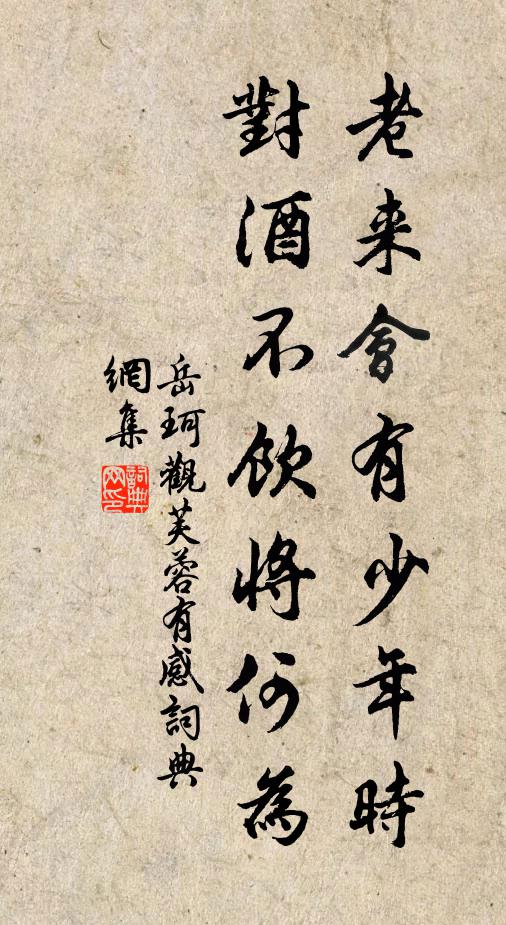 老来會有少年時
對酒不飲將何為
岳珂觀芙蓉有感詞典
網集
詞典網印